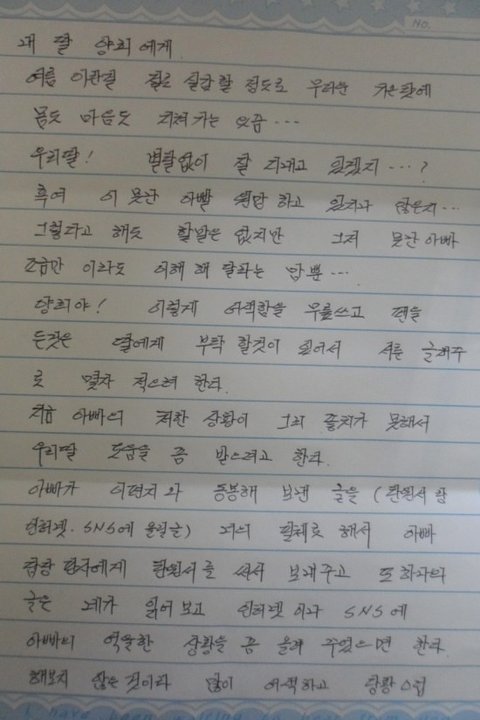 NO.
내 딸 향희에게
여름 이란걸 절로 실감할 정도로 무더운 가운데
몸도 마음도 지쳐가는 요즘...
우리딸! 별탈없이 잘 지내고 있겠지...?
혹여 이 못난 아빨 원망 하고 있지나 않은지...
그렇다고 해도 할말은 없지만 그저 못난 아빠
조금만 이라도 이해 해 달라는 맘뿐...
향희야! 이렇게 어색함을 무릅쓰고 펜을
든것은 딸에게 부탁 할것이 있어서 서툰 글재주
로 몇자 적으려 한다.
지금 아빠의 처한 상황이 그리 좋지가 못해서
우리딸 도움을 좀 받으려고 한다.
아빠가 이편지와 동봉해 보낸 글을 (탄원서 와
인터넷. SNS에 올릴글) 너의 필체로 해서 아빠
담당 판사에게 탄원서를 써서 보내주고 또 하나의
글은 네가 읽어보고 인터넷 이나 SNS에
아빠의 억울한 상황을 좀 올려 주었으면 한다.
해보지 않은 것이라 많이 어색하고 당황스럽